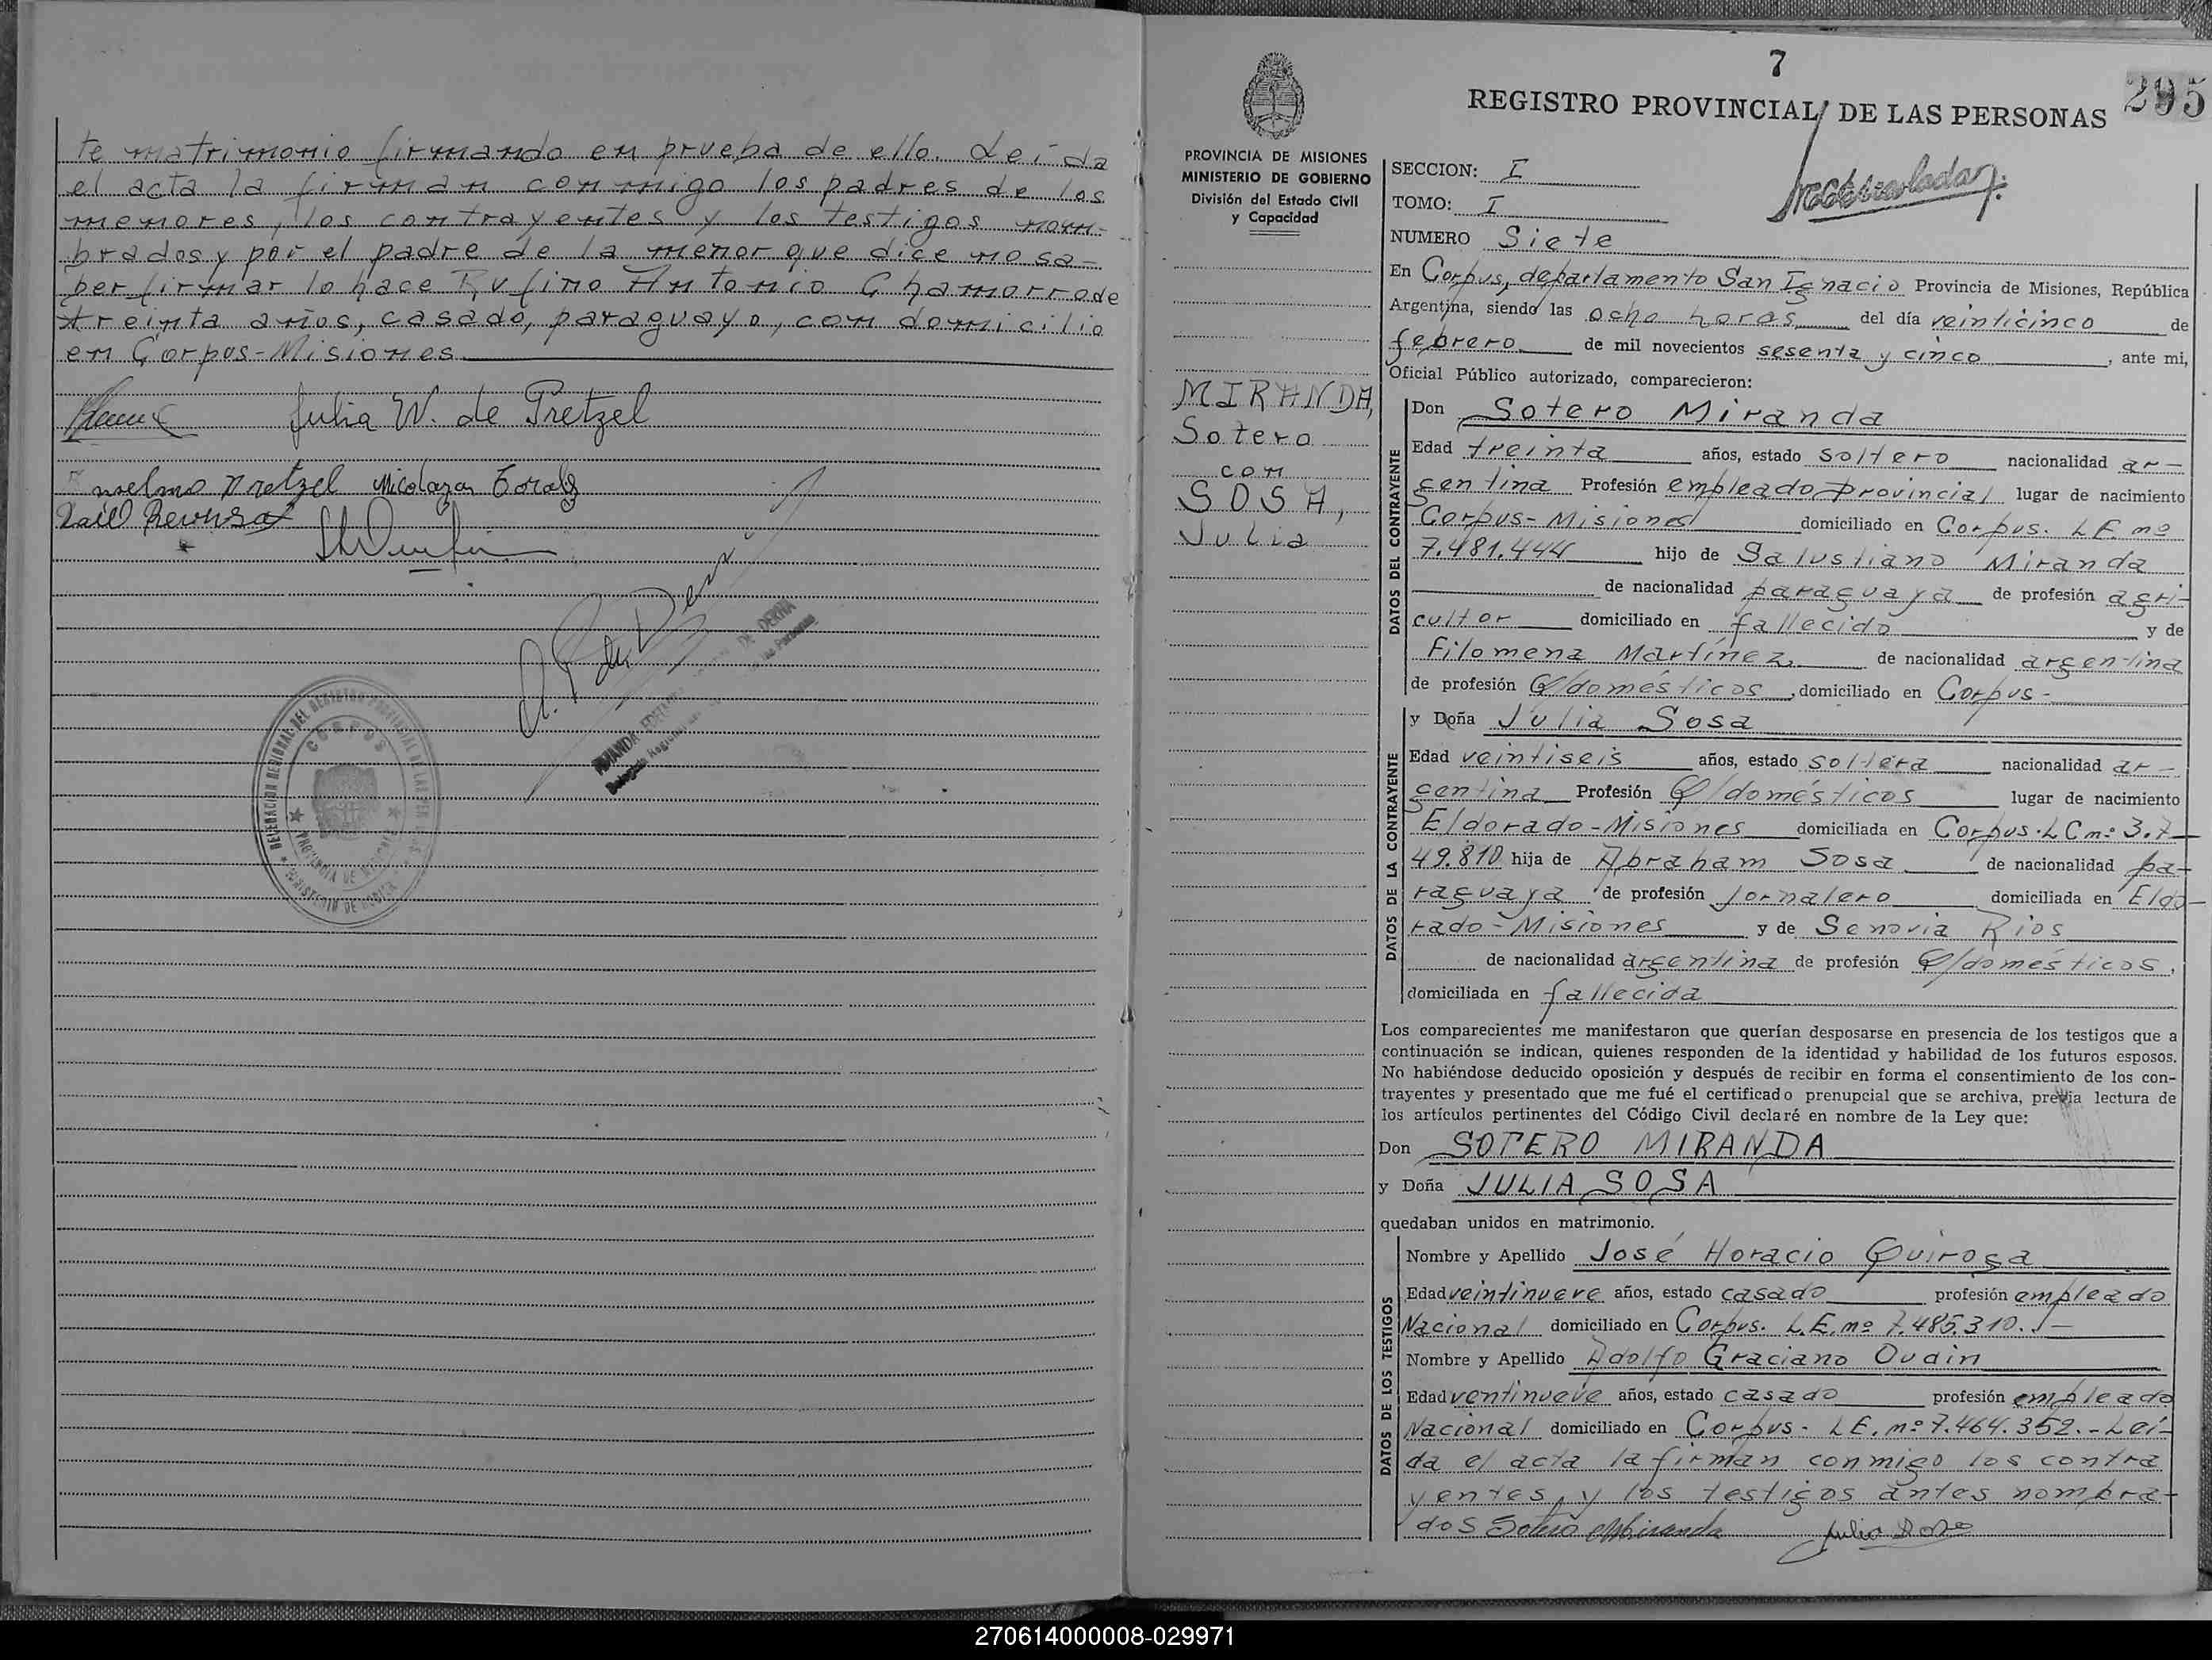 te matrimonio firmando en prueba de ello. Leída
el acta la firman conmigo los padres de los
menores, los contrayentes y los testigos nom-
brados y por el padre de la menor que dice no sa-
ber firmar lo hace Rufino Antonio Chamorro de
treinta años, casado, paraguayo, con domicilio
en Corpus-Misiones
Julia W. de Pretzel
Anselmo Pretzel Nicolaza
Raúl
CORPUS
7
295
REGISTRO PROVINCIAL DE LAS PERSONAS
PROVINCIA DE MISIONES
MINISTERIO DE GOBIERNO
División del Estado Civil
y Capacidad
MIRANDA,
Sotero
con
SOSA,
Julia
SECCION: I
TOMO: I
NUMERO Siete
En Corpus, departamento San Ignacio Provincia de Misiones, República
Argentina, siendo las ocho horas del día veinticinco de
febrero de mil novecientos sesenta y cinco, ante mi,
Oficial Público autorizado, comparecieron:
DATOS DEL CONTRAYENTE
Don Sotero Miranda
Edad treinta años, estado soltero nacionalidad ar-
gentina Profesión empleado provincial lugar de nacimiento
Corpus-Misiones domiciliado en Corpus. L.E. nº
7.481.444 hijo de Salustiano Miranda
de nacionalidad paraguaya de profesión agri-
cultor domiciliado en fallecido y de
Filomena Martínez de nacionalidad argentina
de profesión Q/domésticos, domiciliado en Corpus-
DATOS DE LA CONTRAYENTE
y Doña Julia Sosa
Edad veintiseis años, estado soltera nacionalidad ar-
gentina Profesión Q/domésticos lugar de nacimiento
Eldorado-Misiones domiciliada en Corpus. L C nº 3.7-
49.810 hija de Abraham Sosa de nacionalidad pa-
raguaya de profesión Jornalero domiciliada en Eldo-
rado-Misiones y de Senovia Rios
de nacionalidad argentina de profesión Q/domésticos,
domiciliada en fallecida
Los comparecientes me manifestaron que querían desposarse en presencia de los testigos que a
continuación se indican, quienes responden de la identidad y habilidad de los futuros esposos.
No habiéndose deducido oposición y después de recibir en forma el consentimiento de los con-
trayentes y presentado que me fué el certificado prenupcial que se archiva, previa lectura de
los artículos pertinentes del Código Civil declaré en nombre de la Ley que:
Don SOTERO MIRANDA
y Doña JULIA SOSA
quedaban unidos en matrimonio.
DATOS DE LOS TESTIGOS
Nombre y Apellido José Horacio Quiroga
Edad veintinueve años, estado casado profesión empleado
Nacional domiciliado en Corpus. L.E. nº 7.485.310.-
Nombre y Apellido Adolfo Graciano Oudin
Edad ventinueve años, estado casado profesión empleado
Nacional domiciliado en Corpus- L E. nº 7.464.352.- Leí-
da el acta la firman conmigo los contra
yentes, y los testigos antes nombra-
dos Sotero Miranda Julia Sosa
270614000008-029971